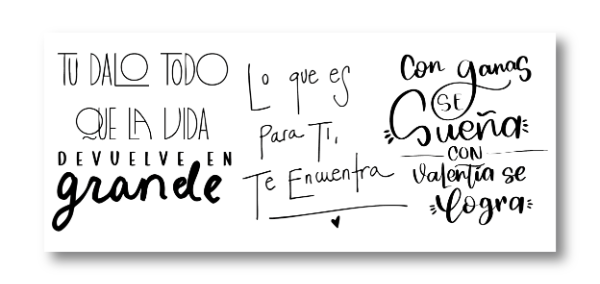 TU DALO TODO
QUE LA VIDA
DEVUELVE EN
grande
Lo que es
Para Ti,
Te Encuentra
Con ganas
SE
Sueña
CON
Valentía se
logra